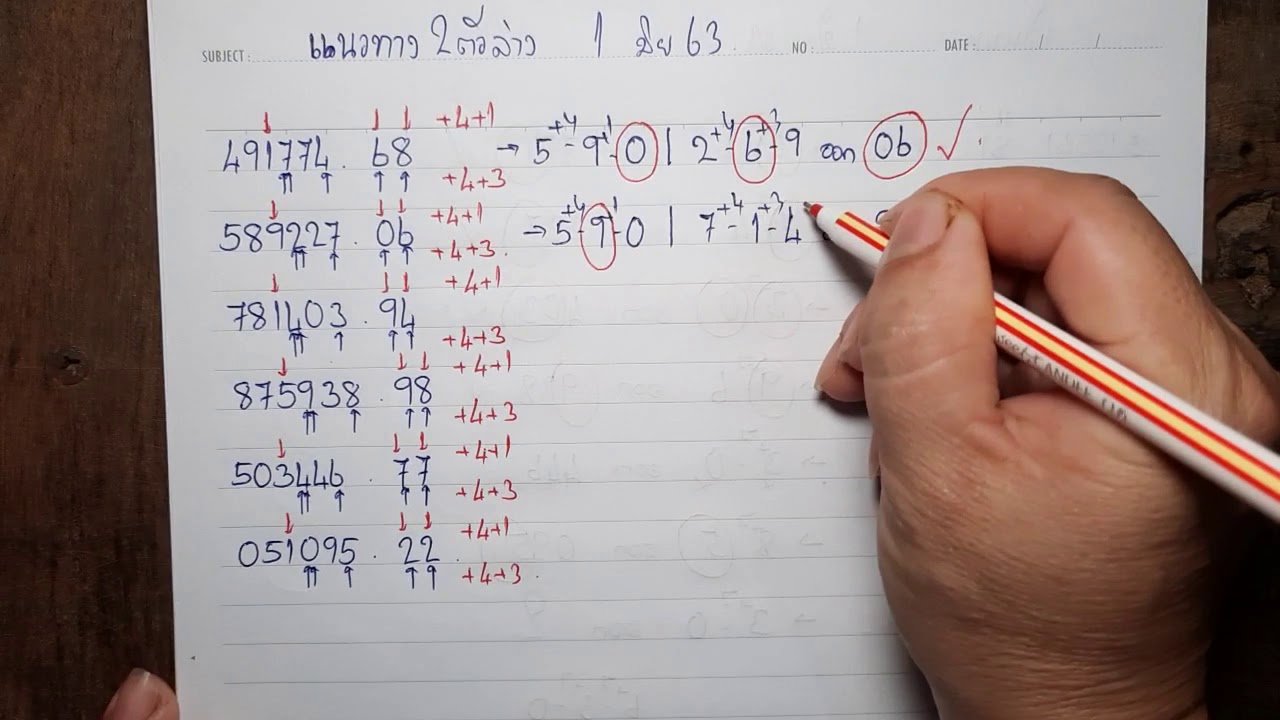 แนวทาง 2 ตัวล่าง 1 มิย 63
SUBJECT : NO : DATE : / /
+4+1
491774 . 68 → 5 +4 - 9 +1 - 0 | 2 +4 - 6 +3 - 9 ออก 06 ✓
+4+3
+4+1
589227 . 06 → 5 +4 - 9 +1 - 0 | 7 +4 - 1 +3 - 4
+4+3.
+4+1
781403 . 94
+4+3
+4+1
875938 . 98
+4+3
+4+1
503446 . 77
+4+3
+4+1
051095 . 22
+4+3